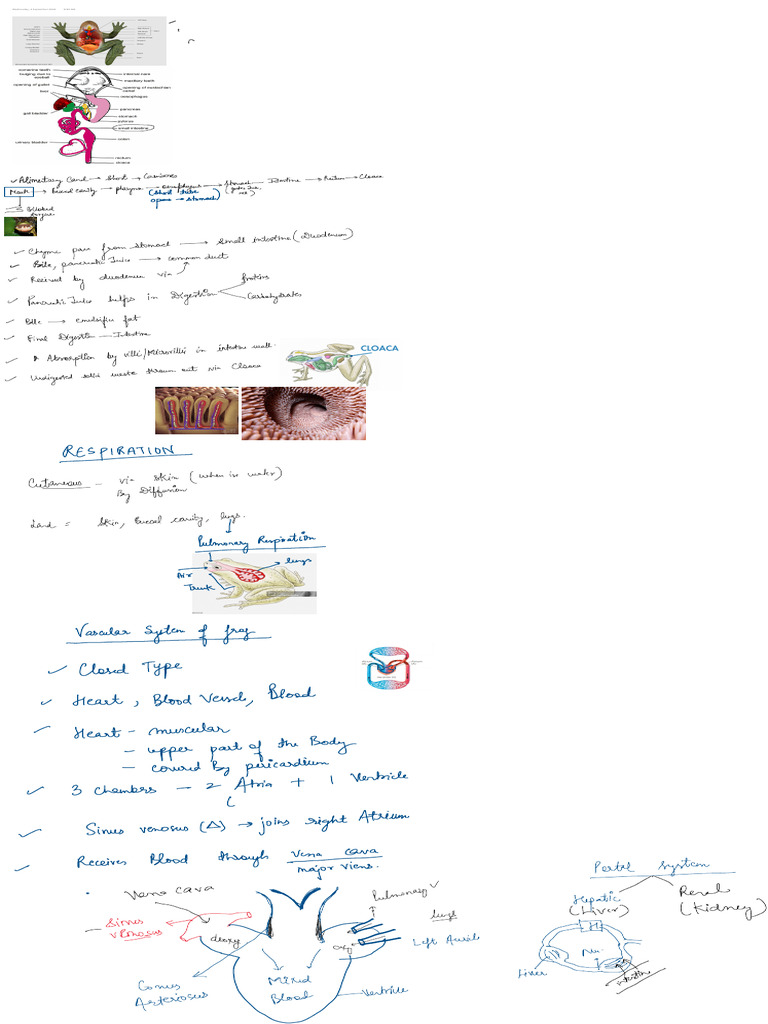 vomerine teeth
bulging due to eyeball
opening of gullet
liver
gall bladder
urinary bladder
internal nare
maxillary teeth
opening of eustachian
oesophagus
pancreas
stomach
pylorus
small intestine
colon
rectum
cloaca
✓ Alimentary Canal → Short → Carnivores
Mouth → buccal cavity → pharynx → oesophagus → Stomach → Intestine → Rectum → Cloaca
(short tube
opens → stomach)
Bilobed
tongue
✓ Chyme pass from stomach → small intestine (Duodenum)
✓ Bile, pancreatic Juice → common duct
✓ Recieved by duodenum via
✓ Pancreatic Juice helps in Digestion
Proteins
Carbohydrates
✓ Bile → emulsifies fat
✓ Final Digestion — Intestine
✓ Absorption by villi/Microvilli in intestine wall.
✓ Undigested solid waste thrown out via Cloaca
CLOACA
RESPIRATION
Cutaneous — via skin (when in water)
By Diffusion
Land = Skin, Buccal cavity, lungs.
Pulmonary Respiration
Air
lungs
Trunk
Vascular System of frog
✓ Closed Type
✓ Heart, Blood Vessels, Blood
✓ Heart — muscular
— upper part of the Body
— covered By pericardium
✓ 3 chambers — 2 Atria + 1 Ventricle
✓ Sinus venosus (Δ) → joins right Atrium
✓ Receives Blood through Vena cava
major viens.
Vena cava
Sinus
venosus
deoxy
Conus
Arteriosus
Mixed
Blood
Ventricle
oxy
Pulmonary
lungs
Left Auricle
Portal System
Hepatic
(Liver)
Renal
(Kidney)
Liver
intestine